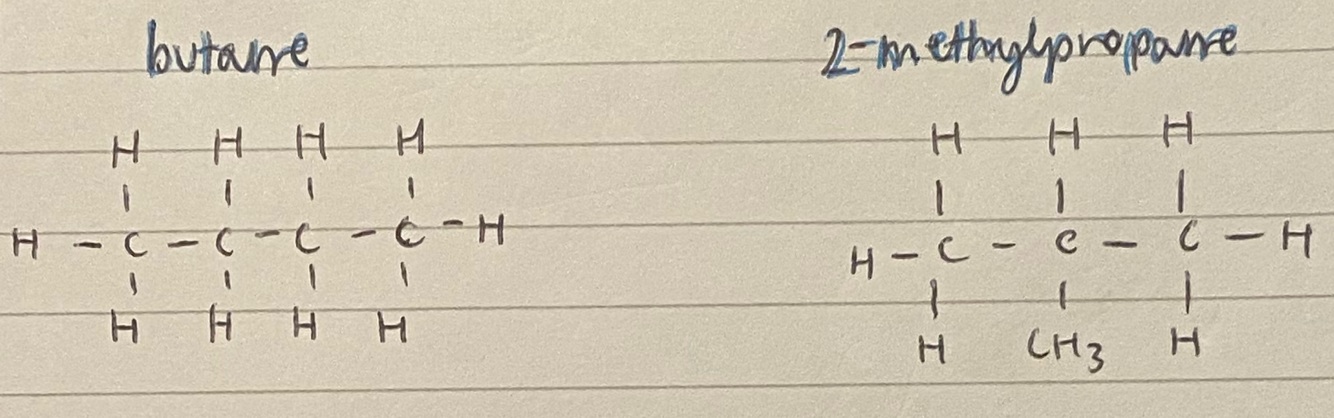 butane
H H H H
H - C - C - C - C - H
H H H H
2-methylpropane
H H H
H - C - C - C - H
H CH3 H